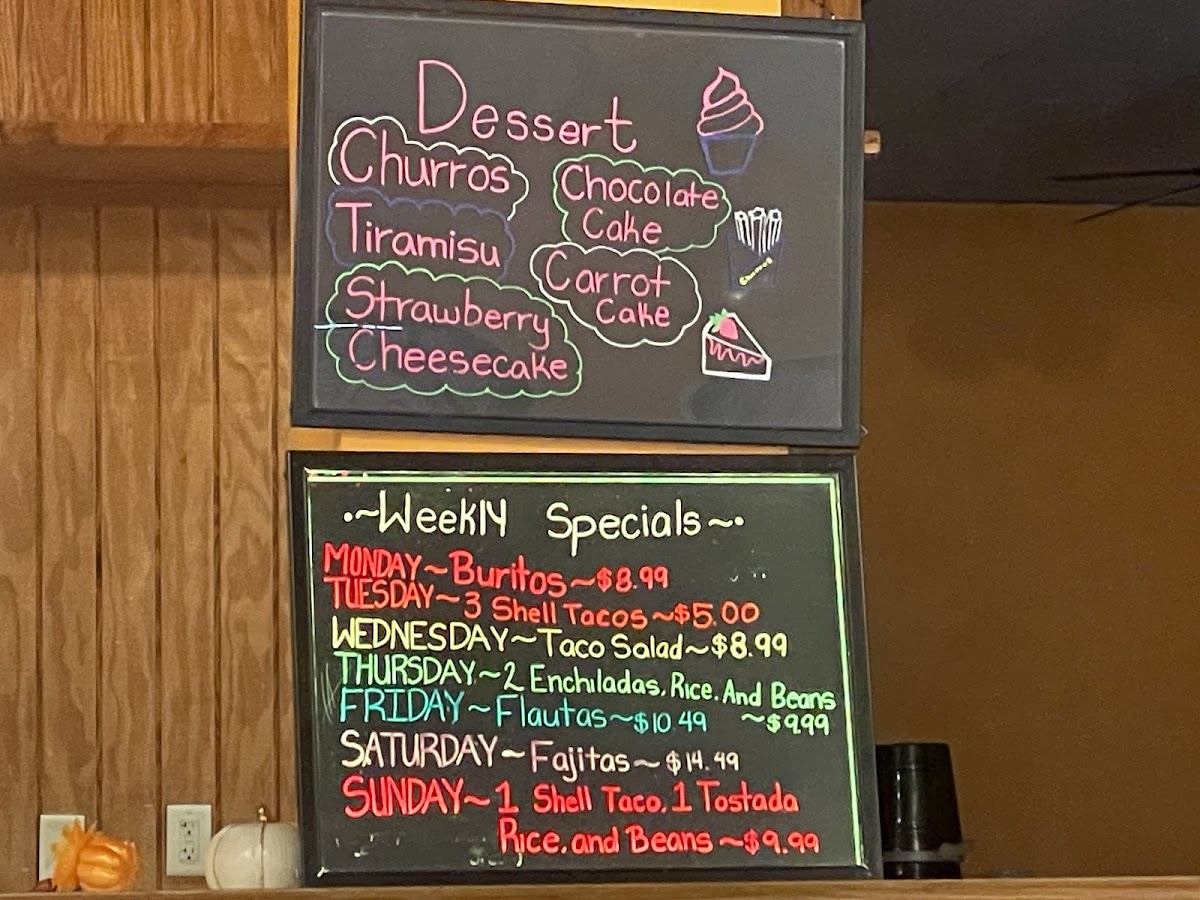 Dessert
Churros
Tiramisu
Strawberry
Cheesecake
Chocolate
Cake
Carrot
Cake
Churros
·~Weekly Specials~·
MONDAY~Buritos~$8.99
TUESDAY~3 Shell Tacos~$5.00
WEDNESDAY~Taco Salad~$8.99
THURSDAY~2 Enchiladas, Rice, And Beans
~$9.99
FRIDAY~Flautas~$10.49
SATURDAY~Fajitas~$14.49
SUNDAY~1 Shell Taco, 1 Tostada
Rice, and Beans~$9.99